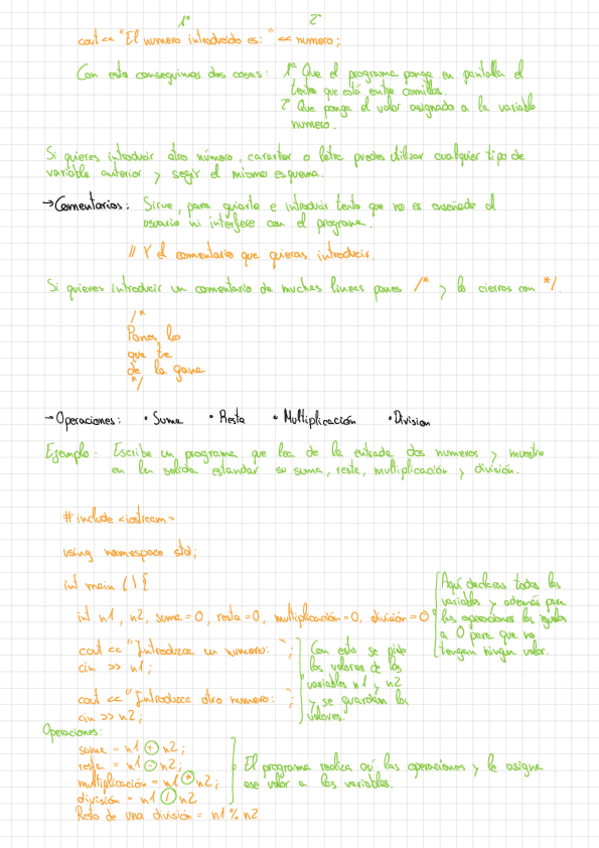 1º 2º
cout << "El numero introducido es: " << numero;
Con esto conseguimos dos cosas: 1º Que el programa ponga en pantalla el
texto que está entre comillas.
2º Que ponga el valor asignado a la variable
numero.
Si quieres introducir otro número, caracter o letra puedes utilizar cualquier tipo de
variable anterior y seguir el mismo esquema.
→Comentarios: Sirve, para guiarte e introducir texto que no es enseñado al
usuario ni interfere con el programa.
// Y el comentario que quieras introducir.
Si quieres introducir un comentario de muchas lineas pones /* y lo cierras con */.
/*
Pones lo
que te
de la gana
*/
→Operaciones: • Suma • Resta • Multiplicación • Division
Ejemplo: Escribe un programa que lea de la entrada dos numeros y muestre
en la salida estandar su suma, resta, multiplicación y división.
#include <iostream>
using namespace std;
int main () {
int n1, n2, suma=0, resta=0, multiplicación=0, división=0
Aquí declaras todas las
variables y además para
las operaciones las igualas
a 0 para que no
tengan ningun valor.
cout << "Introduzca un numero: ";
cin >> n1;
cout << "Introduzca otro numero: ";
cin >> n2;
Con esto se pide
los valores de las
variables n1 y n2
y se guardan los
valores.
Operaciones:
suma = n1 + n2;
resta = n1 - n2;
multiplicación = n1 * n2;
división = n1 / n2
Resto de una división = n1 % n2
El programa realiza así las operaciones y le asigna
ese valor a las variables.